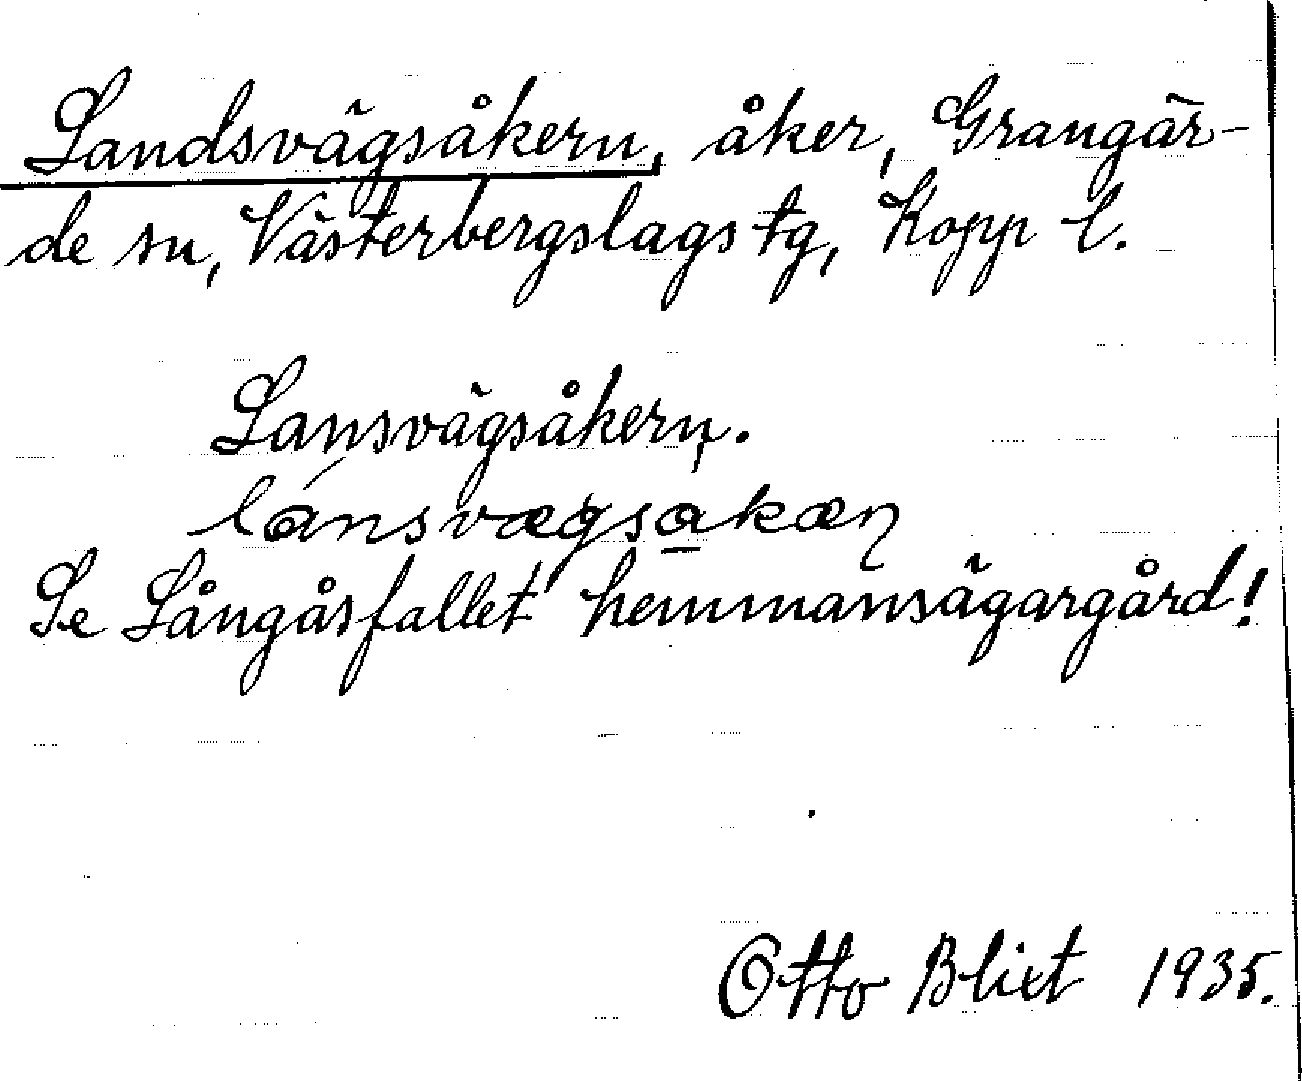 Landsvägsåkern, åker, Grangär-
de sn, Västerbergslags tg, Kopp l.
Lansvägsåkern.
lánsvægsåkæn
Se Långåsfallet hemmansägargård!
Otto Blixt 1935.